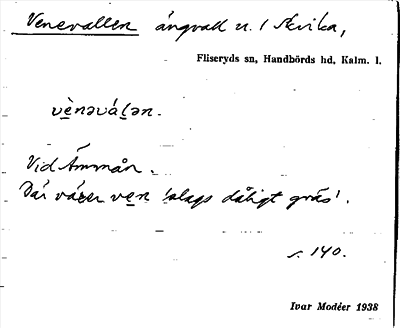 Venevallen ängvall n. / Skvika,
Fliseryds sn, Handbörds hd, Kalm. l.
vènəváḷən.
Vid Ämmån.
Där växer ven 'slags dåligt gräs'.
s. 140.
Ivar Modéer 1938